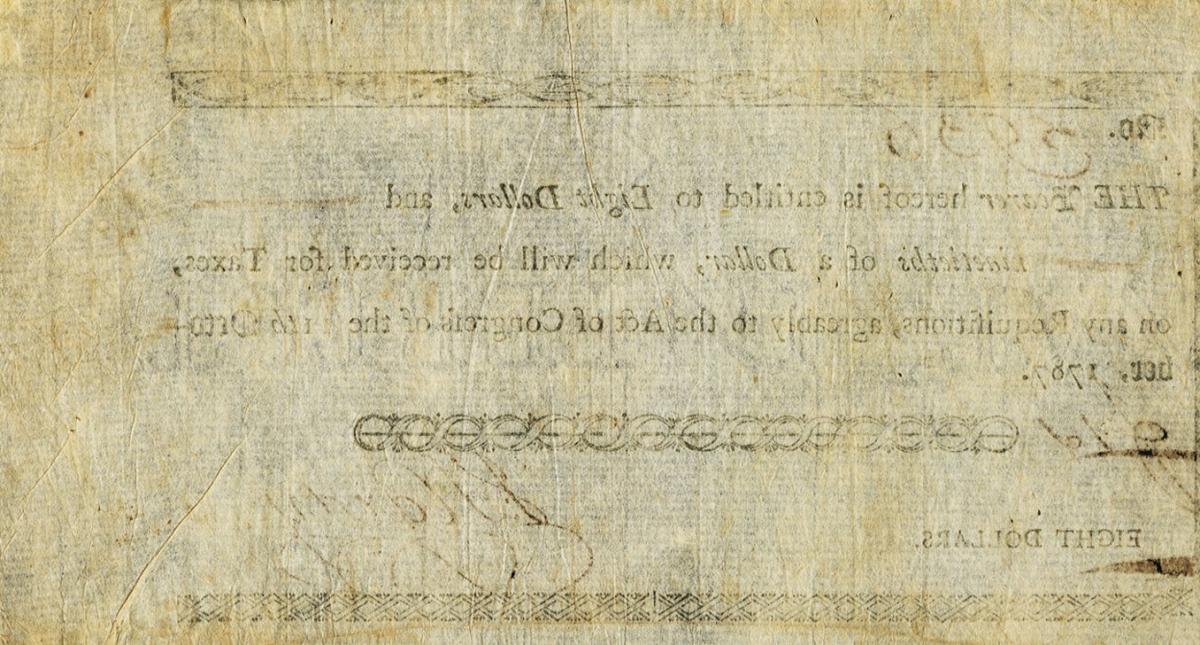 No. 3930
THE Bearer hereof is entitled to Eight Dollars, and
ninetieths of a Dollar, which will be received for Taxes,
on any Requiſitions, agreably to the Act of Congreſs of the 11th Octo-
ber, 1787.
EIGHT DOLLARS.